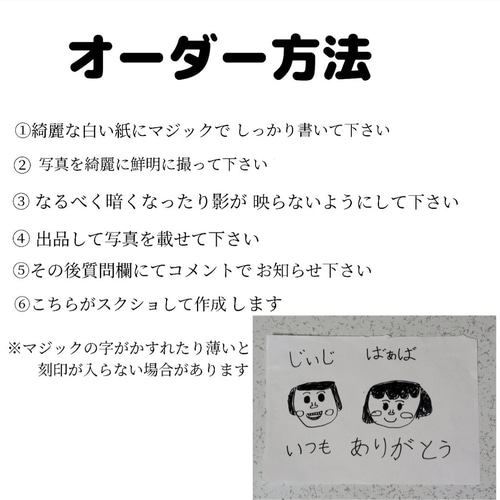 オーダー方法
①綺麗な白い紙にマジックで しっかり書いて下さい
② 写真を綺麗に鮮明に撮って下さい
③ なるべく暗くなったり影が 映らないようにして下さい
④ 出品して写真を載せて下さい
⑤その後質問欄にてコメントで お知らせ下さい
⑥こちらがスクショして作成 します
※マジックの字がかすれたり薄いと
刻印が入らない場合があります
じいじ ばぁば
いつも ありがとう